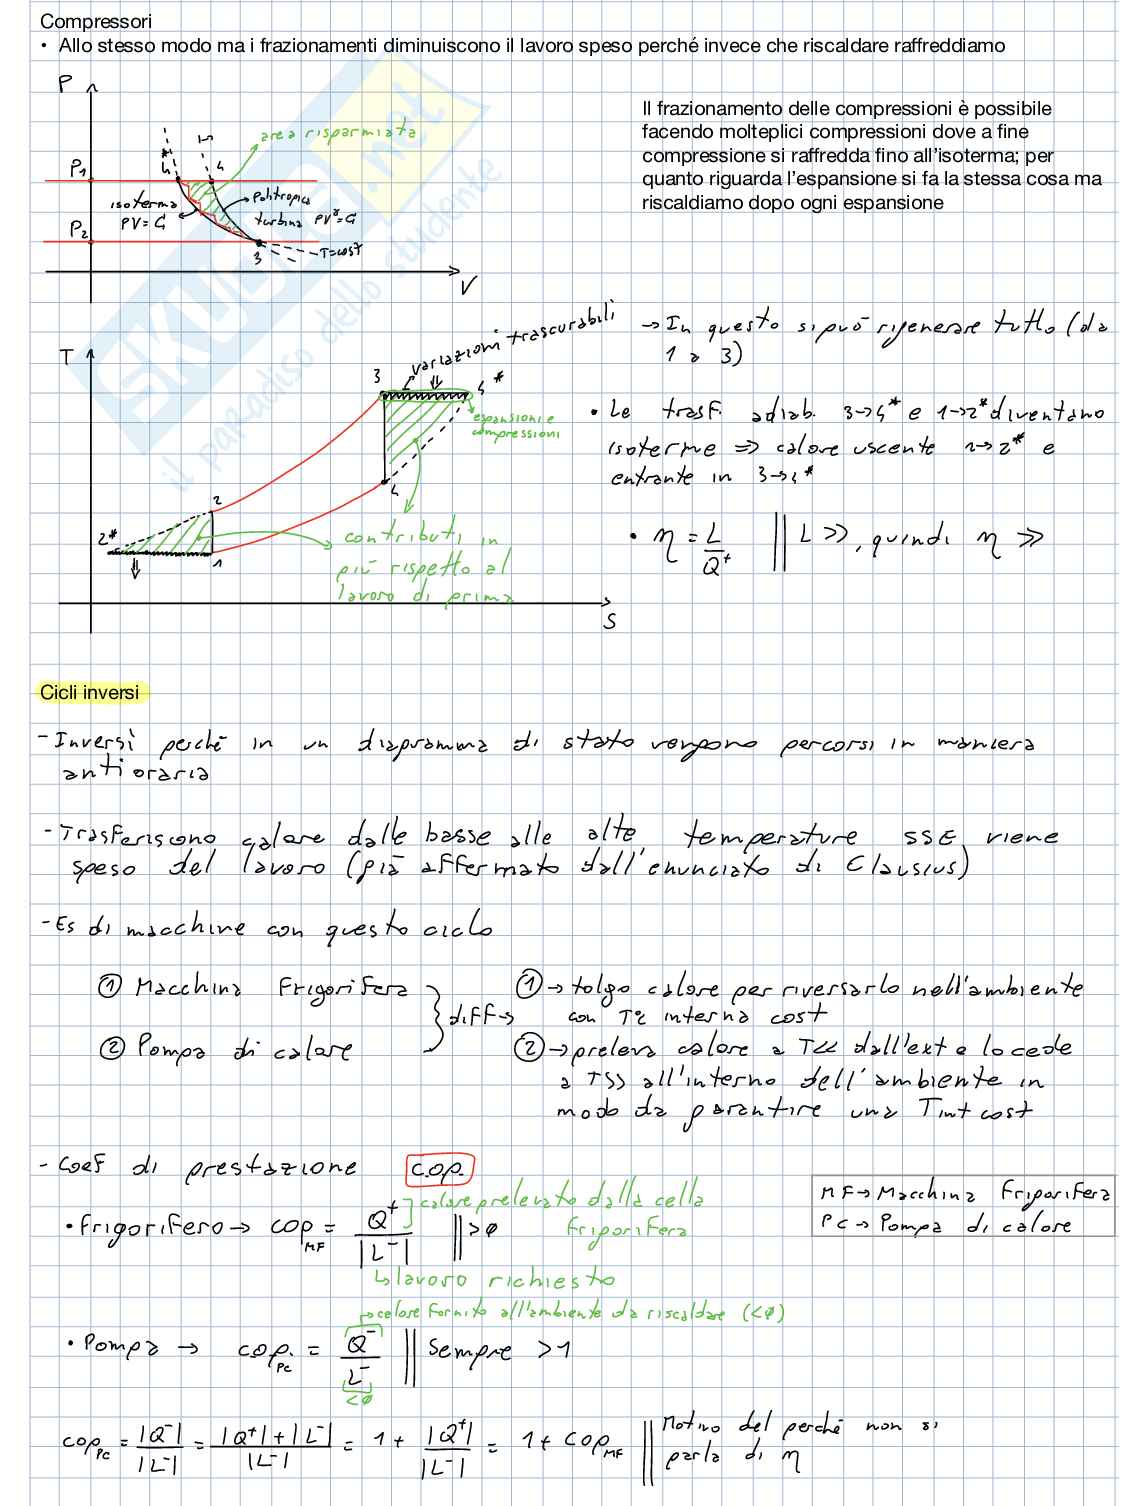 Compressori
• Allo stesso modo ma i frazionamenti diminuiscono il lavoro speso perché invece che riscaldare raffreddiamo
P
area risparmiata
4*
4
P1
isoterma
PV=G
Politropica
turbina PV^γ=G
P2
3
T=cost
V
Il frazionamento delle compressioni è possibile
facendo molteplici compressioni dove a fine
compressione si raffredda fino all'isoterma; per
quanto riguarda l'espansione si fa la stessa cosa ma
riscaldiamo dopo ogni espansione
T
variazioni trascurabili
3
4*
espansioni e
compressioni
4
2
2*
1
contributi in
più rispetto al
lavoro di prima
S
→ In questo si può rigenerare tutto (da
1 a 3)
• Le trasf. adiab. 3→4* e 1→2* diventano
isoterme ⇒ calore uscente 1→2* e
entrante in 3→4*
• η = L/Q⁺ || L >>, quindi η >>
Cicli inversi
- Inversi perché in un diagramma di stato vengono percorsi in maniera
antioraria
- Trasferiscono calore dalle basse alle alte temperature SSE viene
speso del lavoro (già affermato dall'enunciato di Clausius)
- Es di macchine con questo ciclo
① Macchina Frigorifera
② Pompa di calore
diff→
① → tolgo calore per riversarlo nell'ambiente
con T2 interna cost
② → preleva calore a T<< dall'ext e lo cede
a T>> all'interno dell'ambiente in
modo da garantire una Tint cost
- Coef di prestazione C.O.P.
MF → Macchina Frigorifera
PC → Pompa di calore
• Frigorifero → COP MF = Q⁺/|L⁻| || >0
calore prelevato dalla cella
frigorifera
↳ lavoro richiesto
→ calore fornito all'ambiente da riscaldare (<0)
• Pompa → COP PC = Q⁻/L⁻ || Sempre >1
<0
COP PC = |Q⁻|/|L⁻| = |Q⁺|+|L⁻|/|L⁻| = 1 + |Q⁺|/|L⁻| = 1 + COP MF || Motivo del perché non si
parla di η
SKUOLA.net
il paradiso dello studente